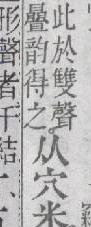 此於雙聲
曡韵得之。从穴米
形聲者千結